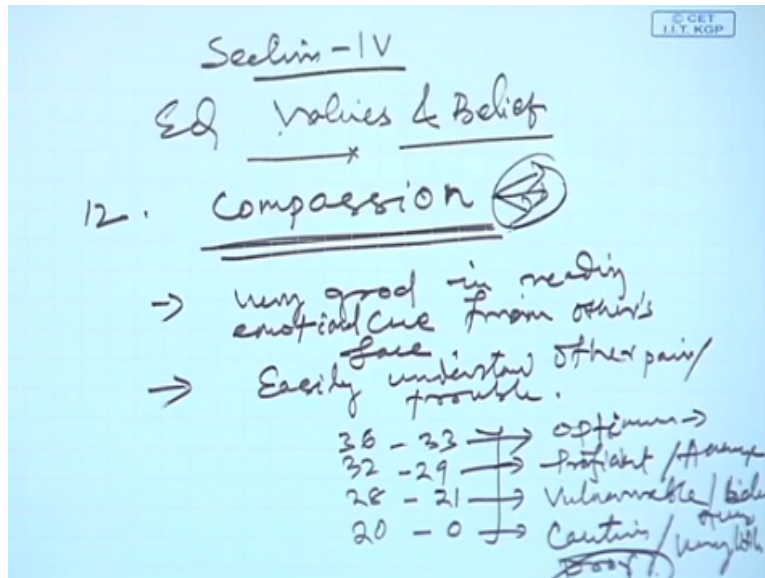 © CET
I.I.T. KGP
Section-IV
EQ Values & Belief
12. Compassion
→ very good in reading
emotional cue from other's
face
→ Easily understand other pain/
trouble.
36 - 33 → optimum →
32 - 29 → Proficient / Average
28 - 21 → Vulnerable /
20 - 0 → Caution /
poor